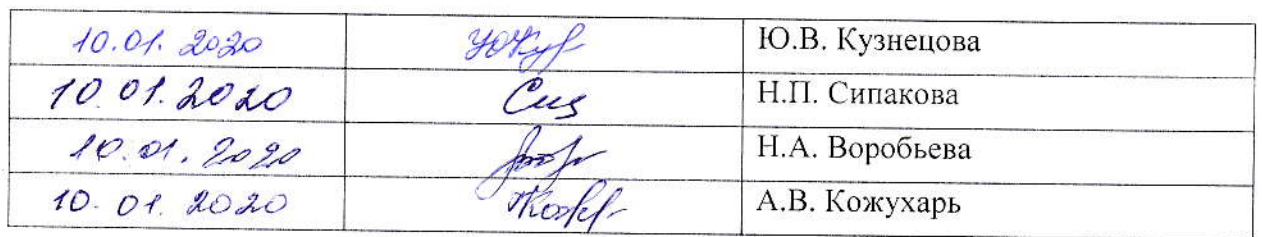 10.01.2020 Ю.В. Кузнецова
10.01.2020 Сип Н.П. Сипакова
10.01.2020 Н.А. Воробьева
10.01.2020 А.В. Кожухарь